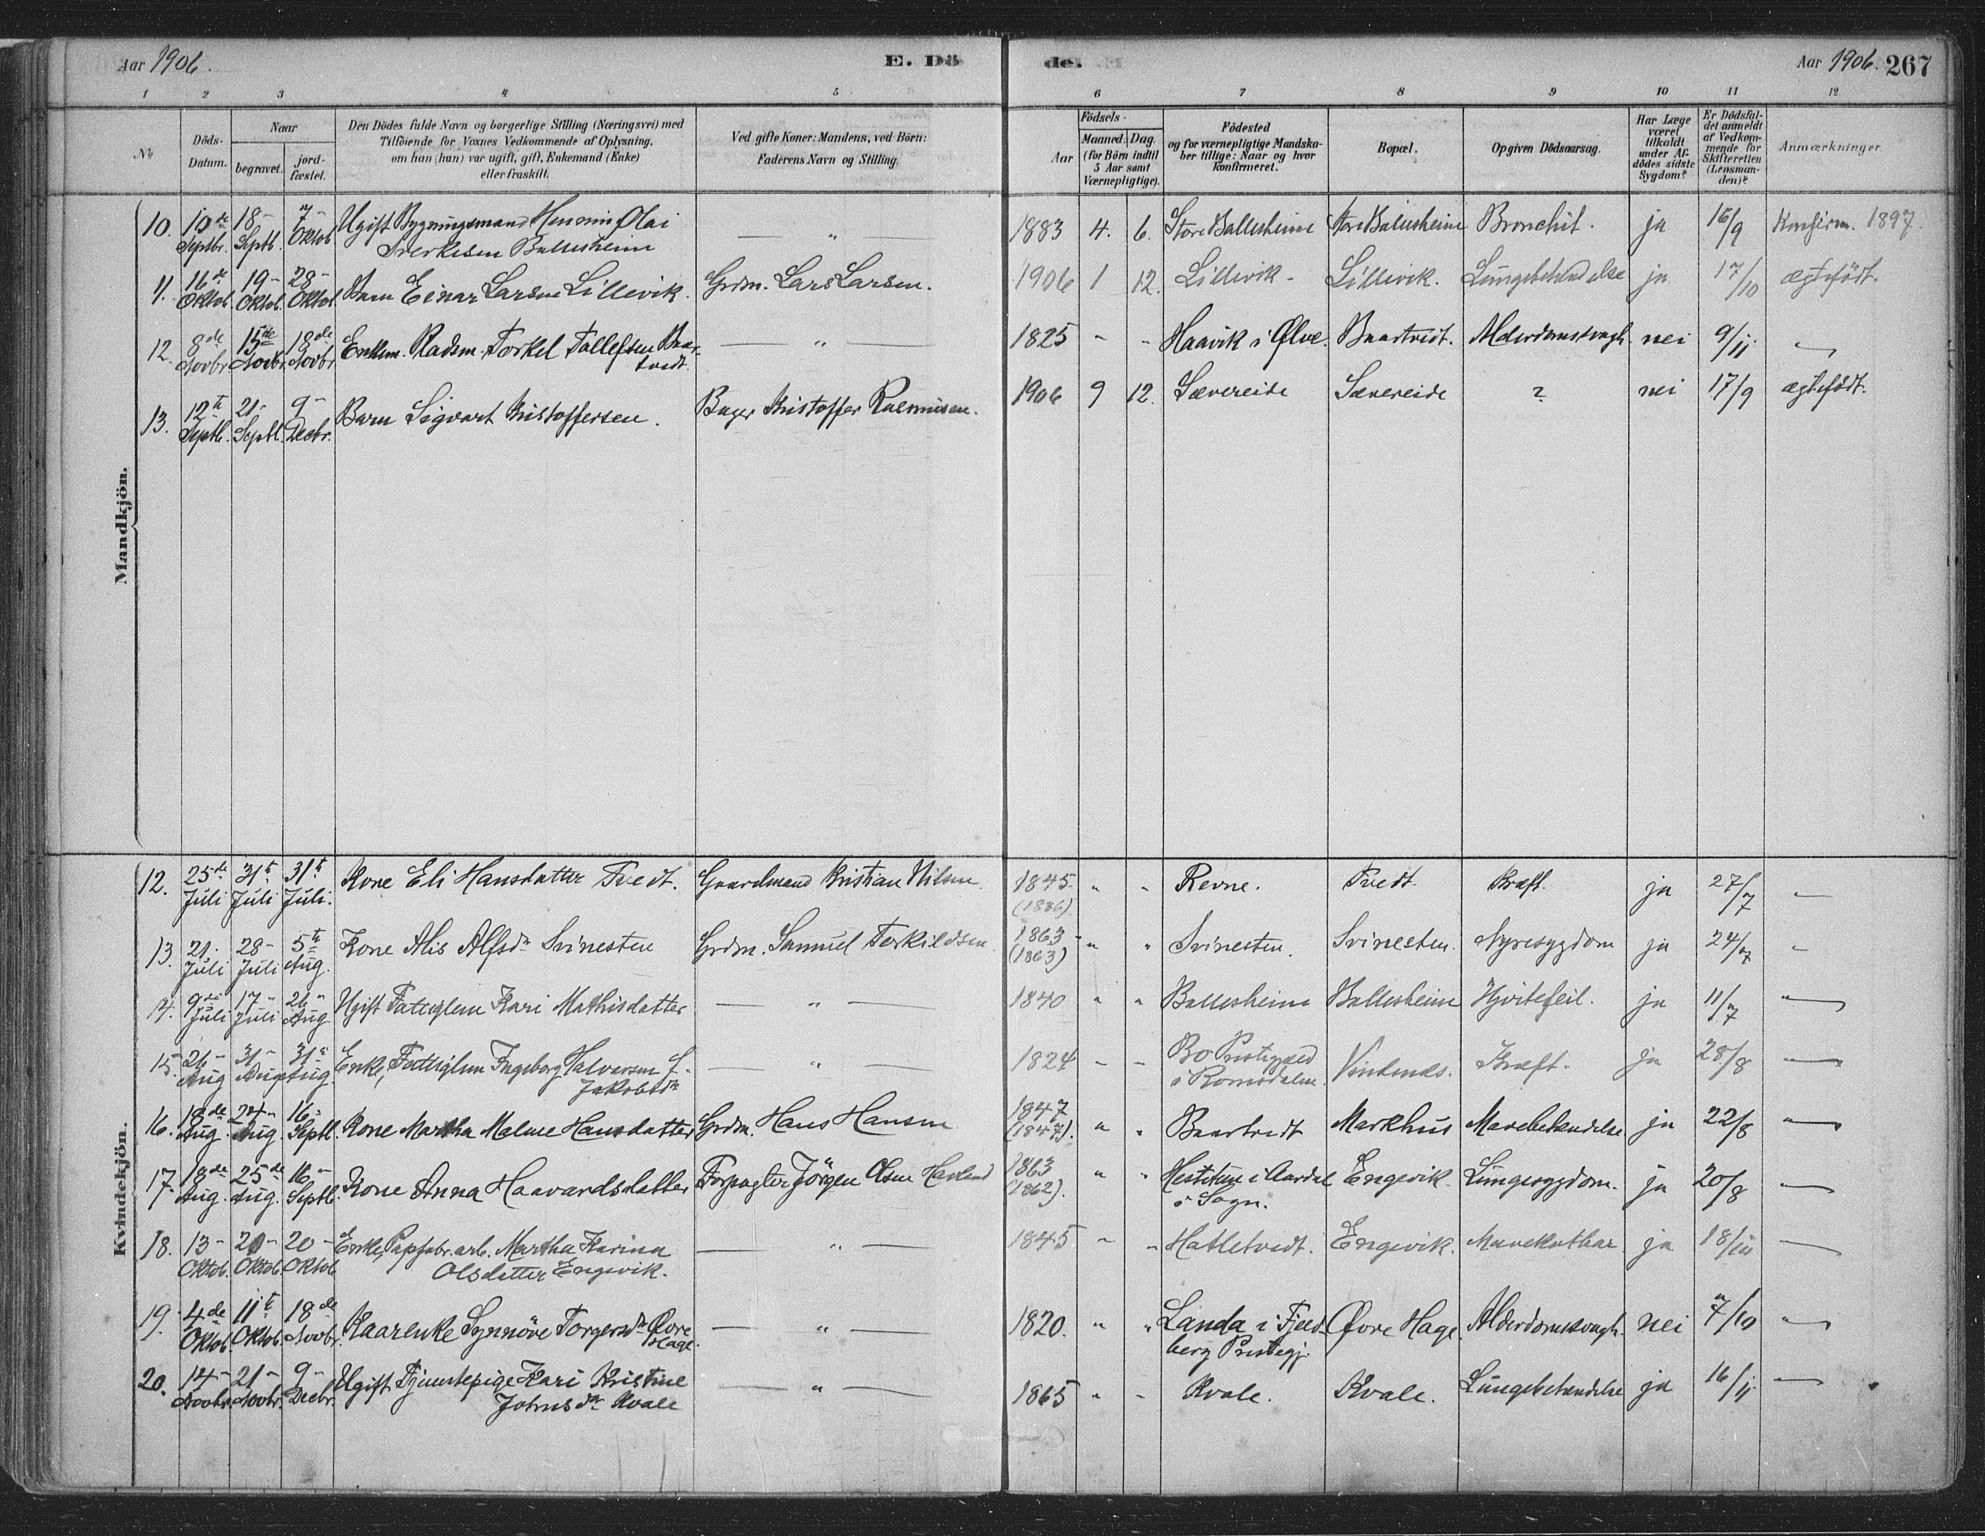 Aar 1906.
E. Dö
de.
Aar 1906. 267
1 2 3 4 5 6 7 8 9 10 11 12
No
Döds-Datum.
Naar
begravet.
jord-fæstet.
Den Dödes fulde Navn og borgerlige Stilling (Næringsvei) med
Tilföiende for Voxnes Vedkommende af Oplysning,
om han (hun) var ugift, gift, Enkemand (Enke)
eller fraskilt.
Ved gifte Koner: Mandens, ved Börn:
Faderens Navn og Stilling.
Aar
Födsels-
Maaned. Dag.
(for Börn indtil
5 Aar samt
Værnepligtige).
Födested
og for værnepligtige Mandska-
ber tillige: Naar og hvor
konfirmeret.
Bopæl.
Opgiven Dödsaarsag.
Har Læge
været
tilkaldt
under Af-
dödes sidste
Sygdom?
Er Dödsfal-
det anmeldt
af Vedkom-
mende for
Skifteretten
(Lensman-
den)?
Anmærkninger
Mandkjön.
10. 10de Septbr. 18- Septb. 7- Oktob. Ugift Bygningsmand Olai Sverkesen Ballesheim — " — 1883 4. 6. Store Ballesheim Store Ballesheim Bronchit. ja 16/9 Konfirm. 1897.
11. 16de Oktob. 19- Oktob. 28- Oktob. Barn Einar Larsen Lillevik. Grdm. Lars Larsen. 1906 1 12. Lillevik - Lillevik. Lungebetændelse ja 17/10 ægtefödt.
12. 8de Novbr. 15de Novbr. 18de Novbr. Enkem. Kadsm. Torkel Tollefsen Baartvedt. — " — 1825 - - Haavik i Ølve. Baartvedt. Alderdomssvagh. nei 9/11 —
13. 12te Septb. 21- Septb. 9- Decbr. Barn Sigvart Kristoffersen. Bager Kristoffer Rasmussen. 1906 9 12. Sævereide Sævereide ? nei 17/9 ægtefödt.
Kvindekjön.
12. 25de Juli 31t Juli 31t Juli. Kone Eli Hansdatter Tvedt. Gaardmand Kristian Nilsen. 1845 (1836). " - Revne. Tvedt. Kræft. ja 27/7 —
13. 21- Juli 28- Juli 5te Aug. Kone Alis Alfsdr Svinesten Grdm. Samuel Terkildsen. 1863 (1863) " " Svinesten. Svinesten. Nyresygdom ja 24/7 "
14. 9de Juli 17- Juli 26- Aug Ugift Fattiglem Kari Mathisdatter — " — 1840 " " Ballesheim Ballesheim Hjertefeil. ja 11/7 —
15. 26- Aug 31- Aug 31- Aug. Enke, Fattiglem Ingeborg Halvorsen f. Jakobsdr — " — 1824 - - Bo Prestegjed i Romsdalen. Vindenes. Kræft. ja 28/8 —
16. 18de Aug. 24- Aug. 16- Septb. Kone Martha Malene Hansdatter Grdm. Hans Hansen 1847 (1847). " " Baartvedt Markhus Mavebetændelse ja 22/8 —
17. 18de Aug. 25de Aug. 16- Septb. Kone Anna Haavardsdatter Forpagter Jörgen Olsen 1863 (1862). " " i Aardal i Sogn. Engevik Lungesygdom. ja 20/8 —
18. 13- Oktob. 20- Oktob. 20- Oktob. Enke, Papfabr. arb. Martha Karina Olsdatter Engevik. — " — 1845 - - Hatletvedt. Engevik. Mavekatbar ja 18/10 —
19. 4de Oktob. 11t Oktob. 18de Novbr. Kaarenke Synnöve Torgersdr Øvre Hage. — " — 1820. " " Landa i Fjeldberg Prestegj. Øvre Hage Alderdomssvagh. nei 7/10 —
20. 14- Novbr. 21- Novbr. 9- Decbr. Ugift Tjenestepige Kari Kristine Johnsdr Kvale — " — 1865 - - Kvale. Kvale. Lungebetændelse ja 16/11 —